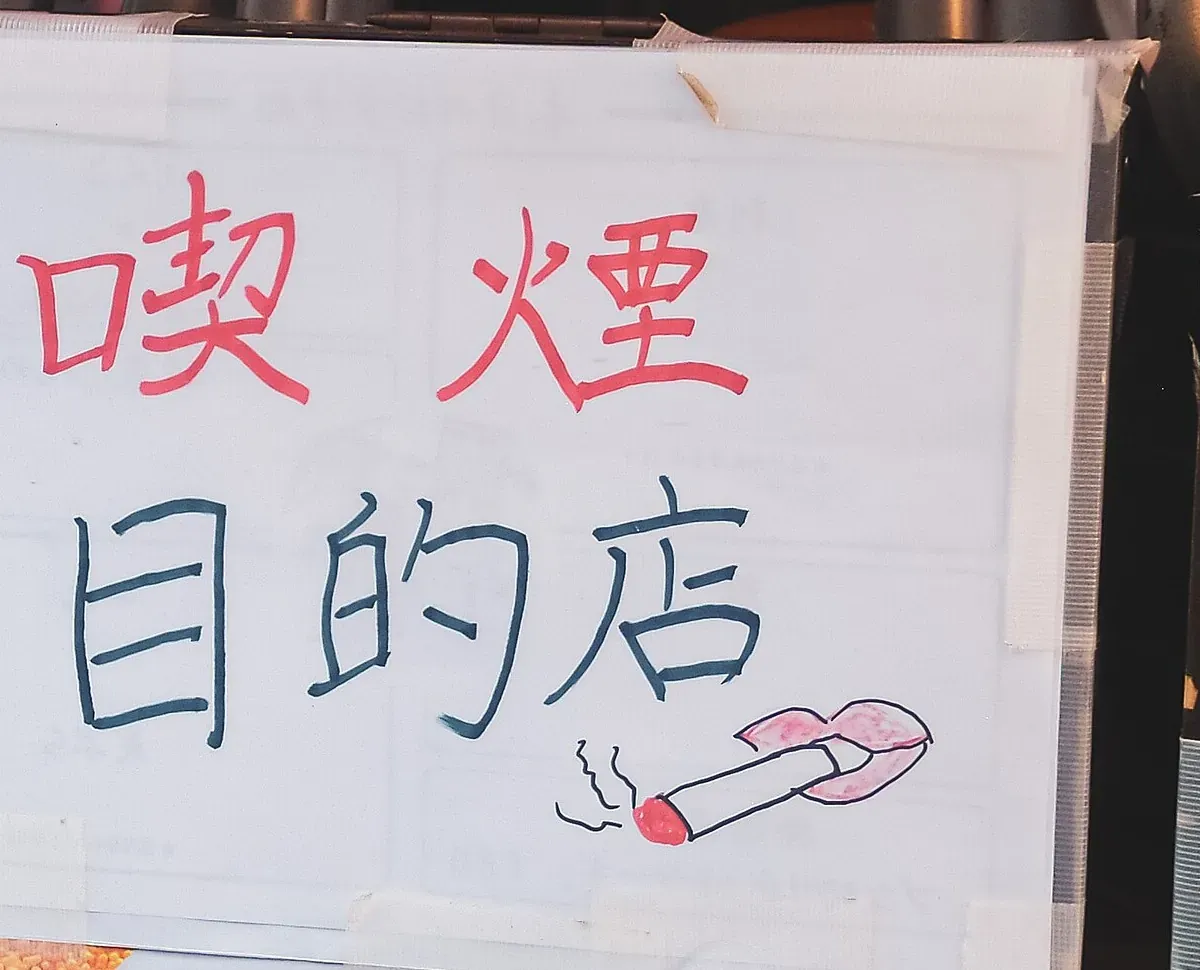 喫煙
目的店